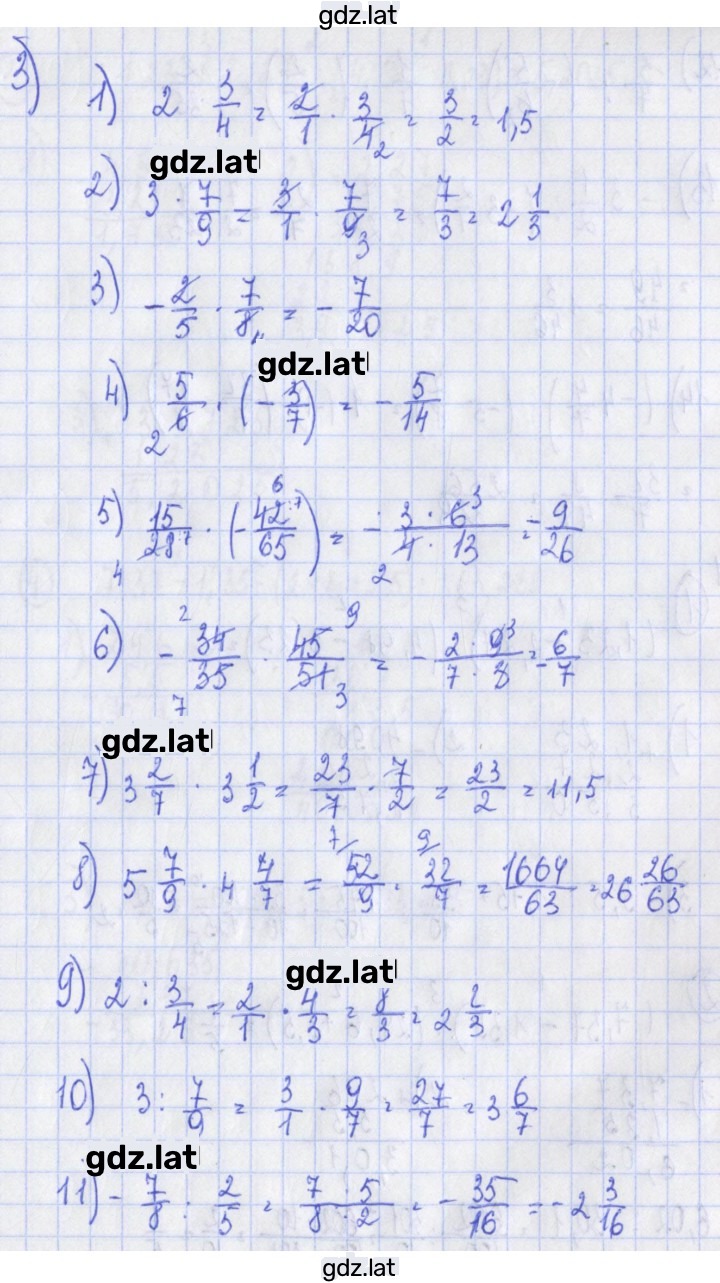 gdz.lat
3)
1) 2 3/4 = 2/1 · 3/4 2 = 3/2 = 1,5
gdz.lat
2) 3 · 7/9 = 3/1 · 7/9 3 = 7/3 = 2 1/3
3) - 2/5 · 7/8 4 = - 7/20
gdz.lat
4) 5/6 2 · (- 3/7) = - 5/14
5) 15/28:7 4 · (- 6 42:7/65) = - 3 · 6 3/4 · 13 2 = - 9/26
6) - 2 34/35 7 · 45 9/51 3 = - 2 · 9 3/7 · 3 = - 6/7
gdz.lat
7) 3 2/7 · 3 1/2 = 23/7 · 7/2 = 23/2 = 11,5
8) 5 7/9 · 4 4/7 = 7/ 52/9 · 9/ 32/7 = 1664/63 = 26 26/63
gdz.lat
9) 2 : 3/4 = 2/1 · 4/3 = 8/3 = 2 2/3
10) 3 : 7/9 = 3/1 · 9/7 = 27/7 = 3 6/7
gdz.lat
11) - 7/8 : 2/5 = 7 · 5/8 · 2 = - 35/16 = - 2 3/16
gdz.lat